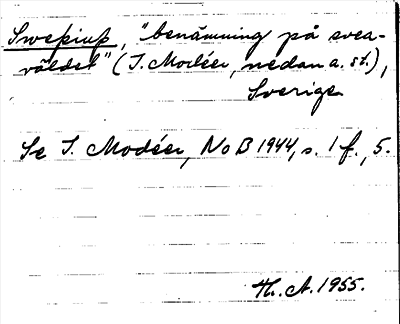 Sweþiuþ, "benämning på svea-
väldet" (I. Modéer, nedan a. st.),
Sverige
Se I. Modéer, NoB 1944, s. 1 f., 5.
Th. A. 1955.